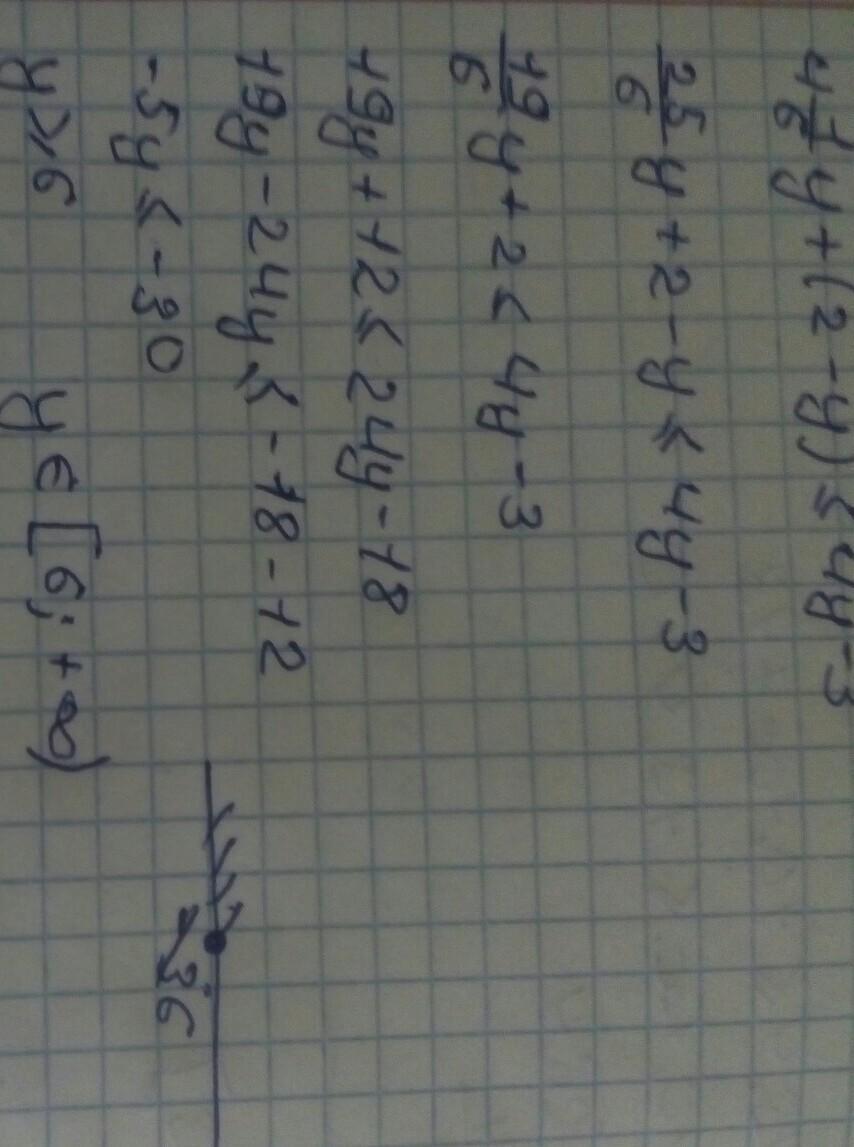 4 1/6 y + (2 - y) ≤ 4y - 3
25/6 y + 2 - y ≤ 4y - 3
19/6 y + 2 ≤ 4y - 3
19y + 12 ≤ 24y - 18
19y - 24y ≤ -18 - 12
-5y ≤ -30
y ≥ 6 y ∈ [6; +∞)
6